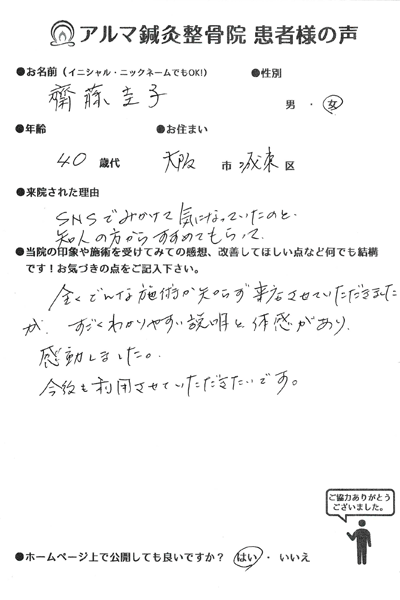 アルマ鍼灸整骨院 患者様の声
●お名前（イニシャル・ニックネームでもOK!） ●性別
齋藤圭子 男・女
●年齢 ●お住まい
40歳代 大阪市城東区
●来院された理由
SNSでみかけて気になっていたのと、
知人の方からすすめてもらって
●当院の印象や施術を受けてみての感想、改善してほしい点など何でも結構
です！お気づきの点をご記入下さい。
全くどんな施術か知らず来店させていただきました
が、すごくわかりやすい説明と体感があり、
感動しました。
今後も利用させていただきたいです。
ご協力ありがとう
ございました。
●ホームページ上で公開しても良いですか？ はい・いいえ